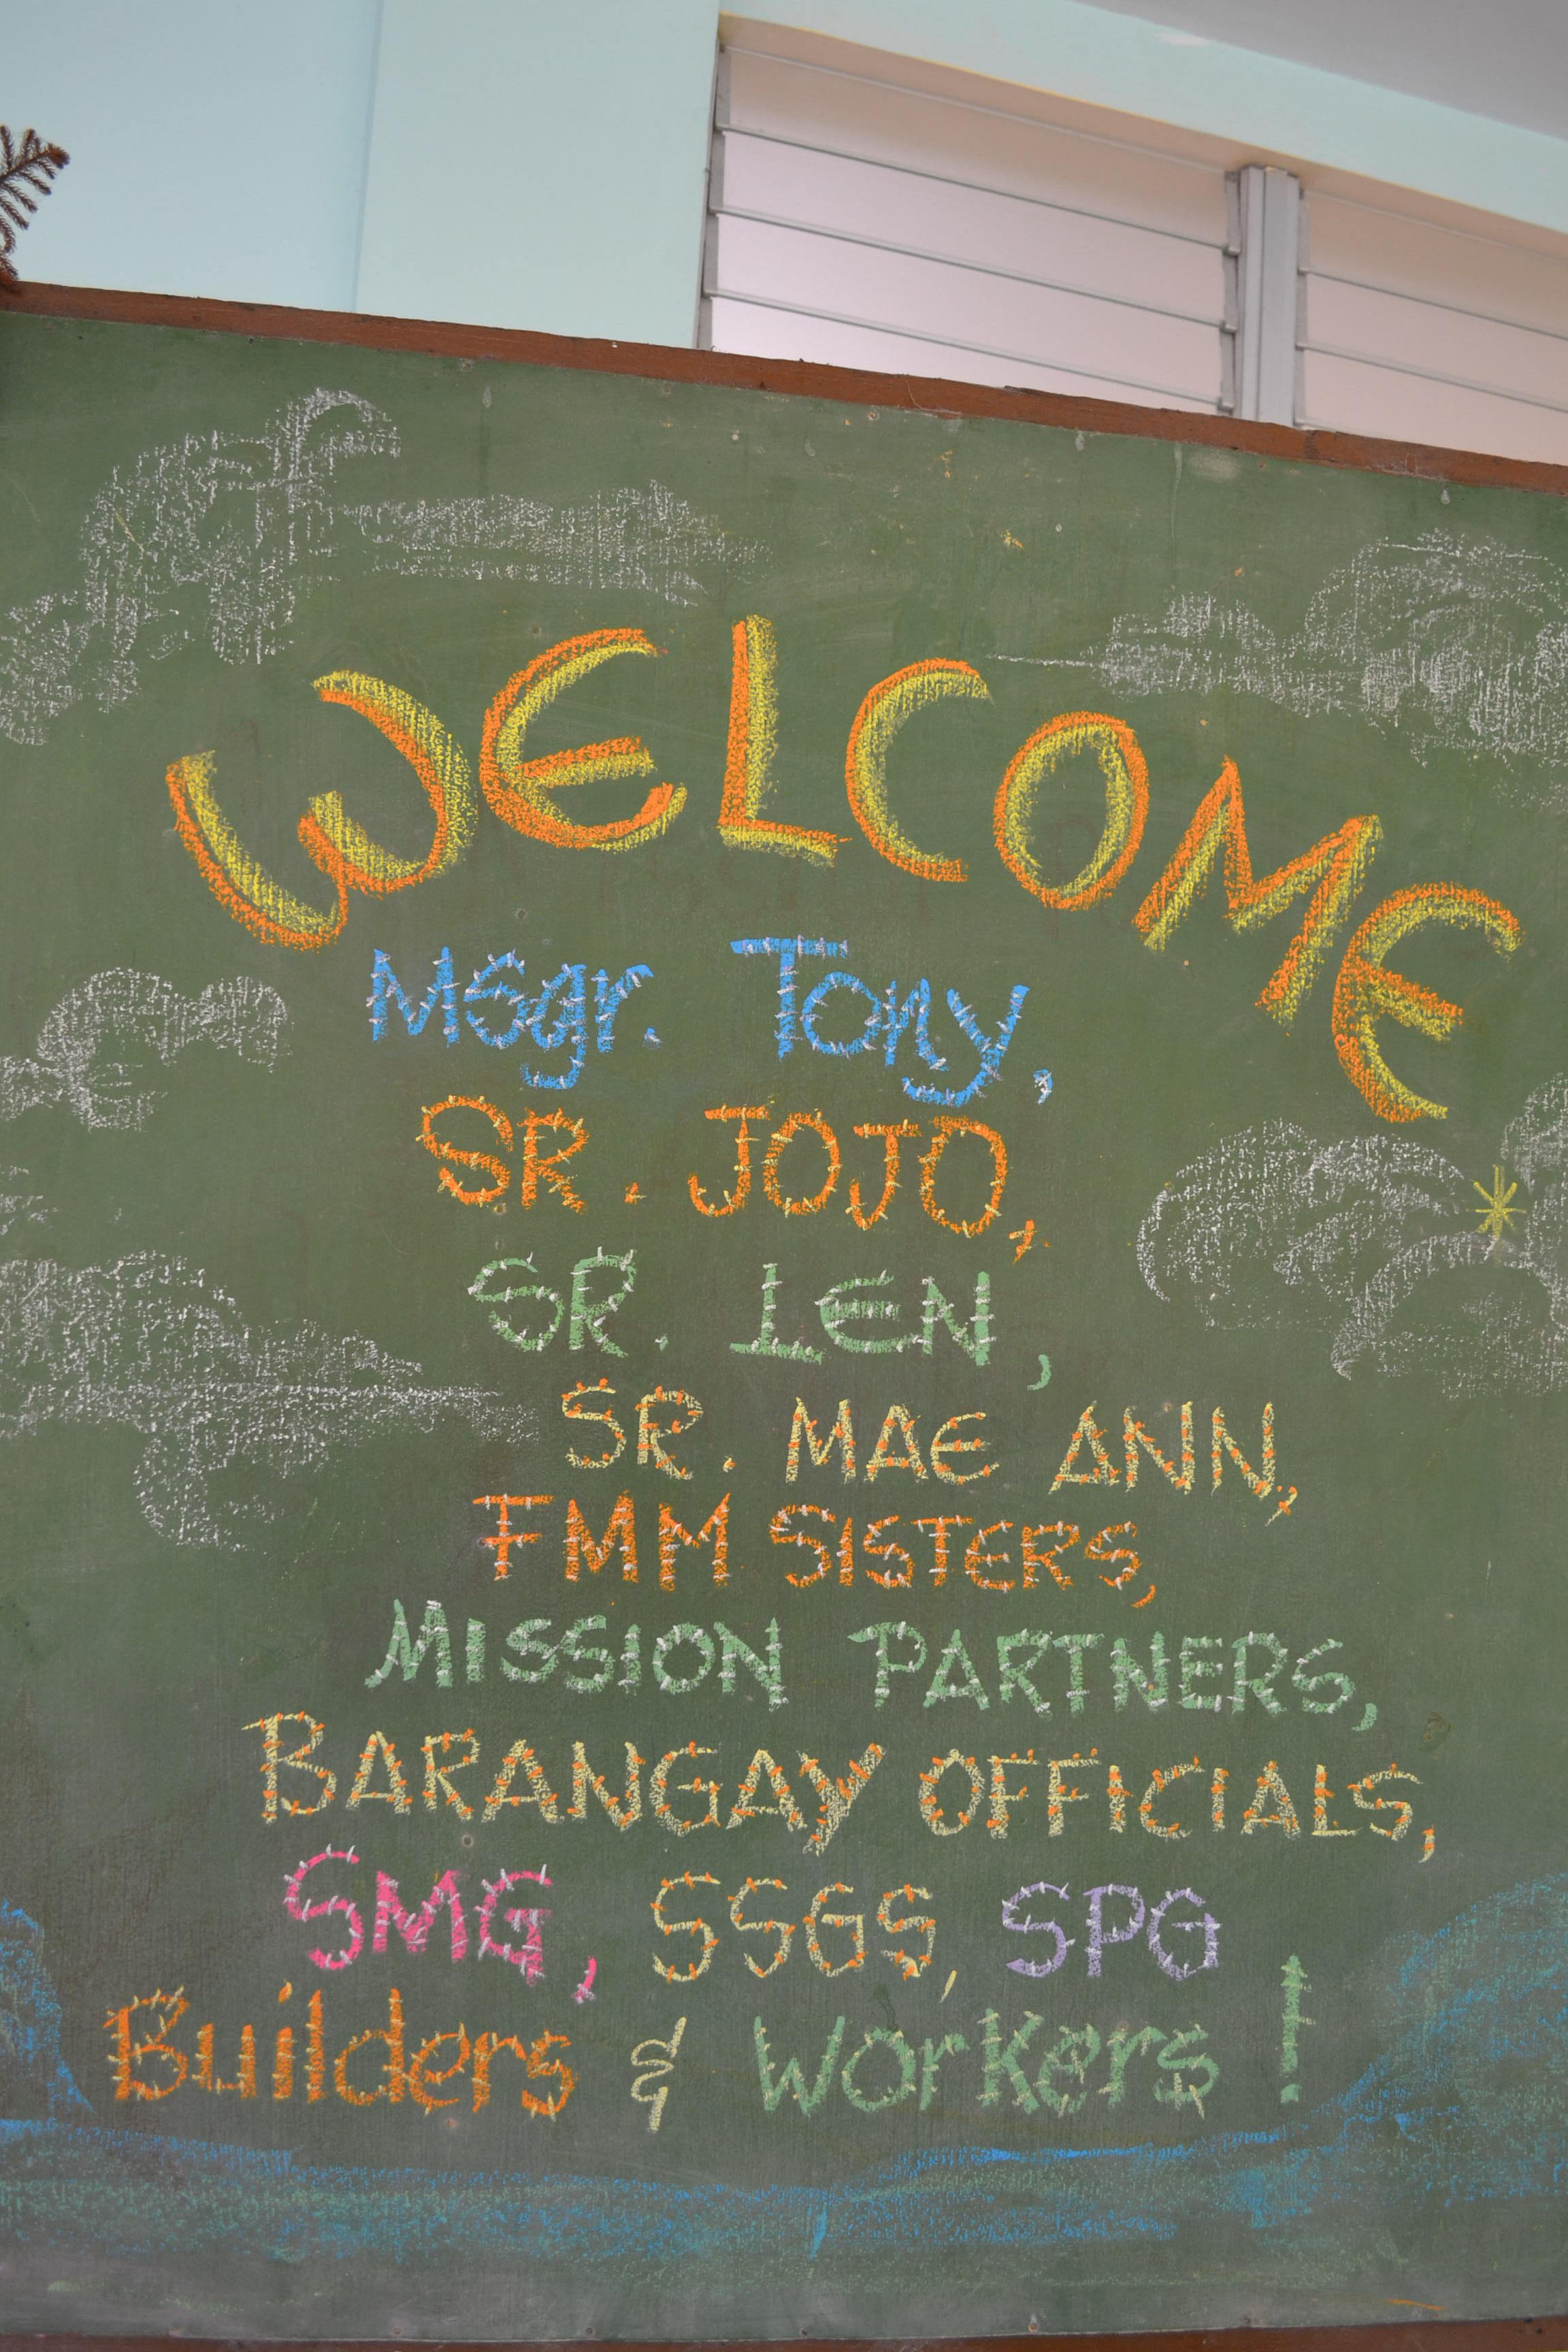 WELCOME
Msgr. Tony,
SR. JOJO,
SR. LEN,
SR. MAE ANN,
FMM SISTERS,
MISSION PARTNERS,
BARANGAY OFFICIALS,
SMG, SSGS, SPG
Builders & workers!